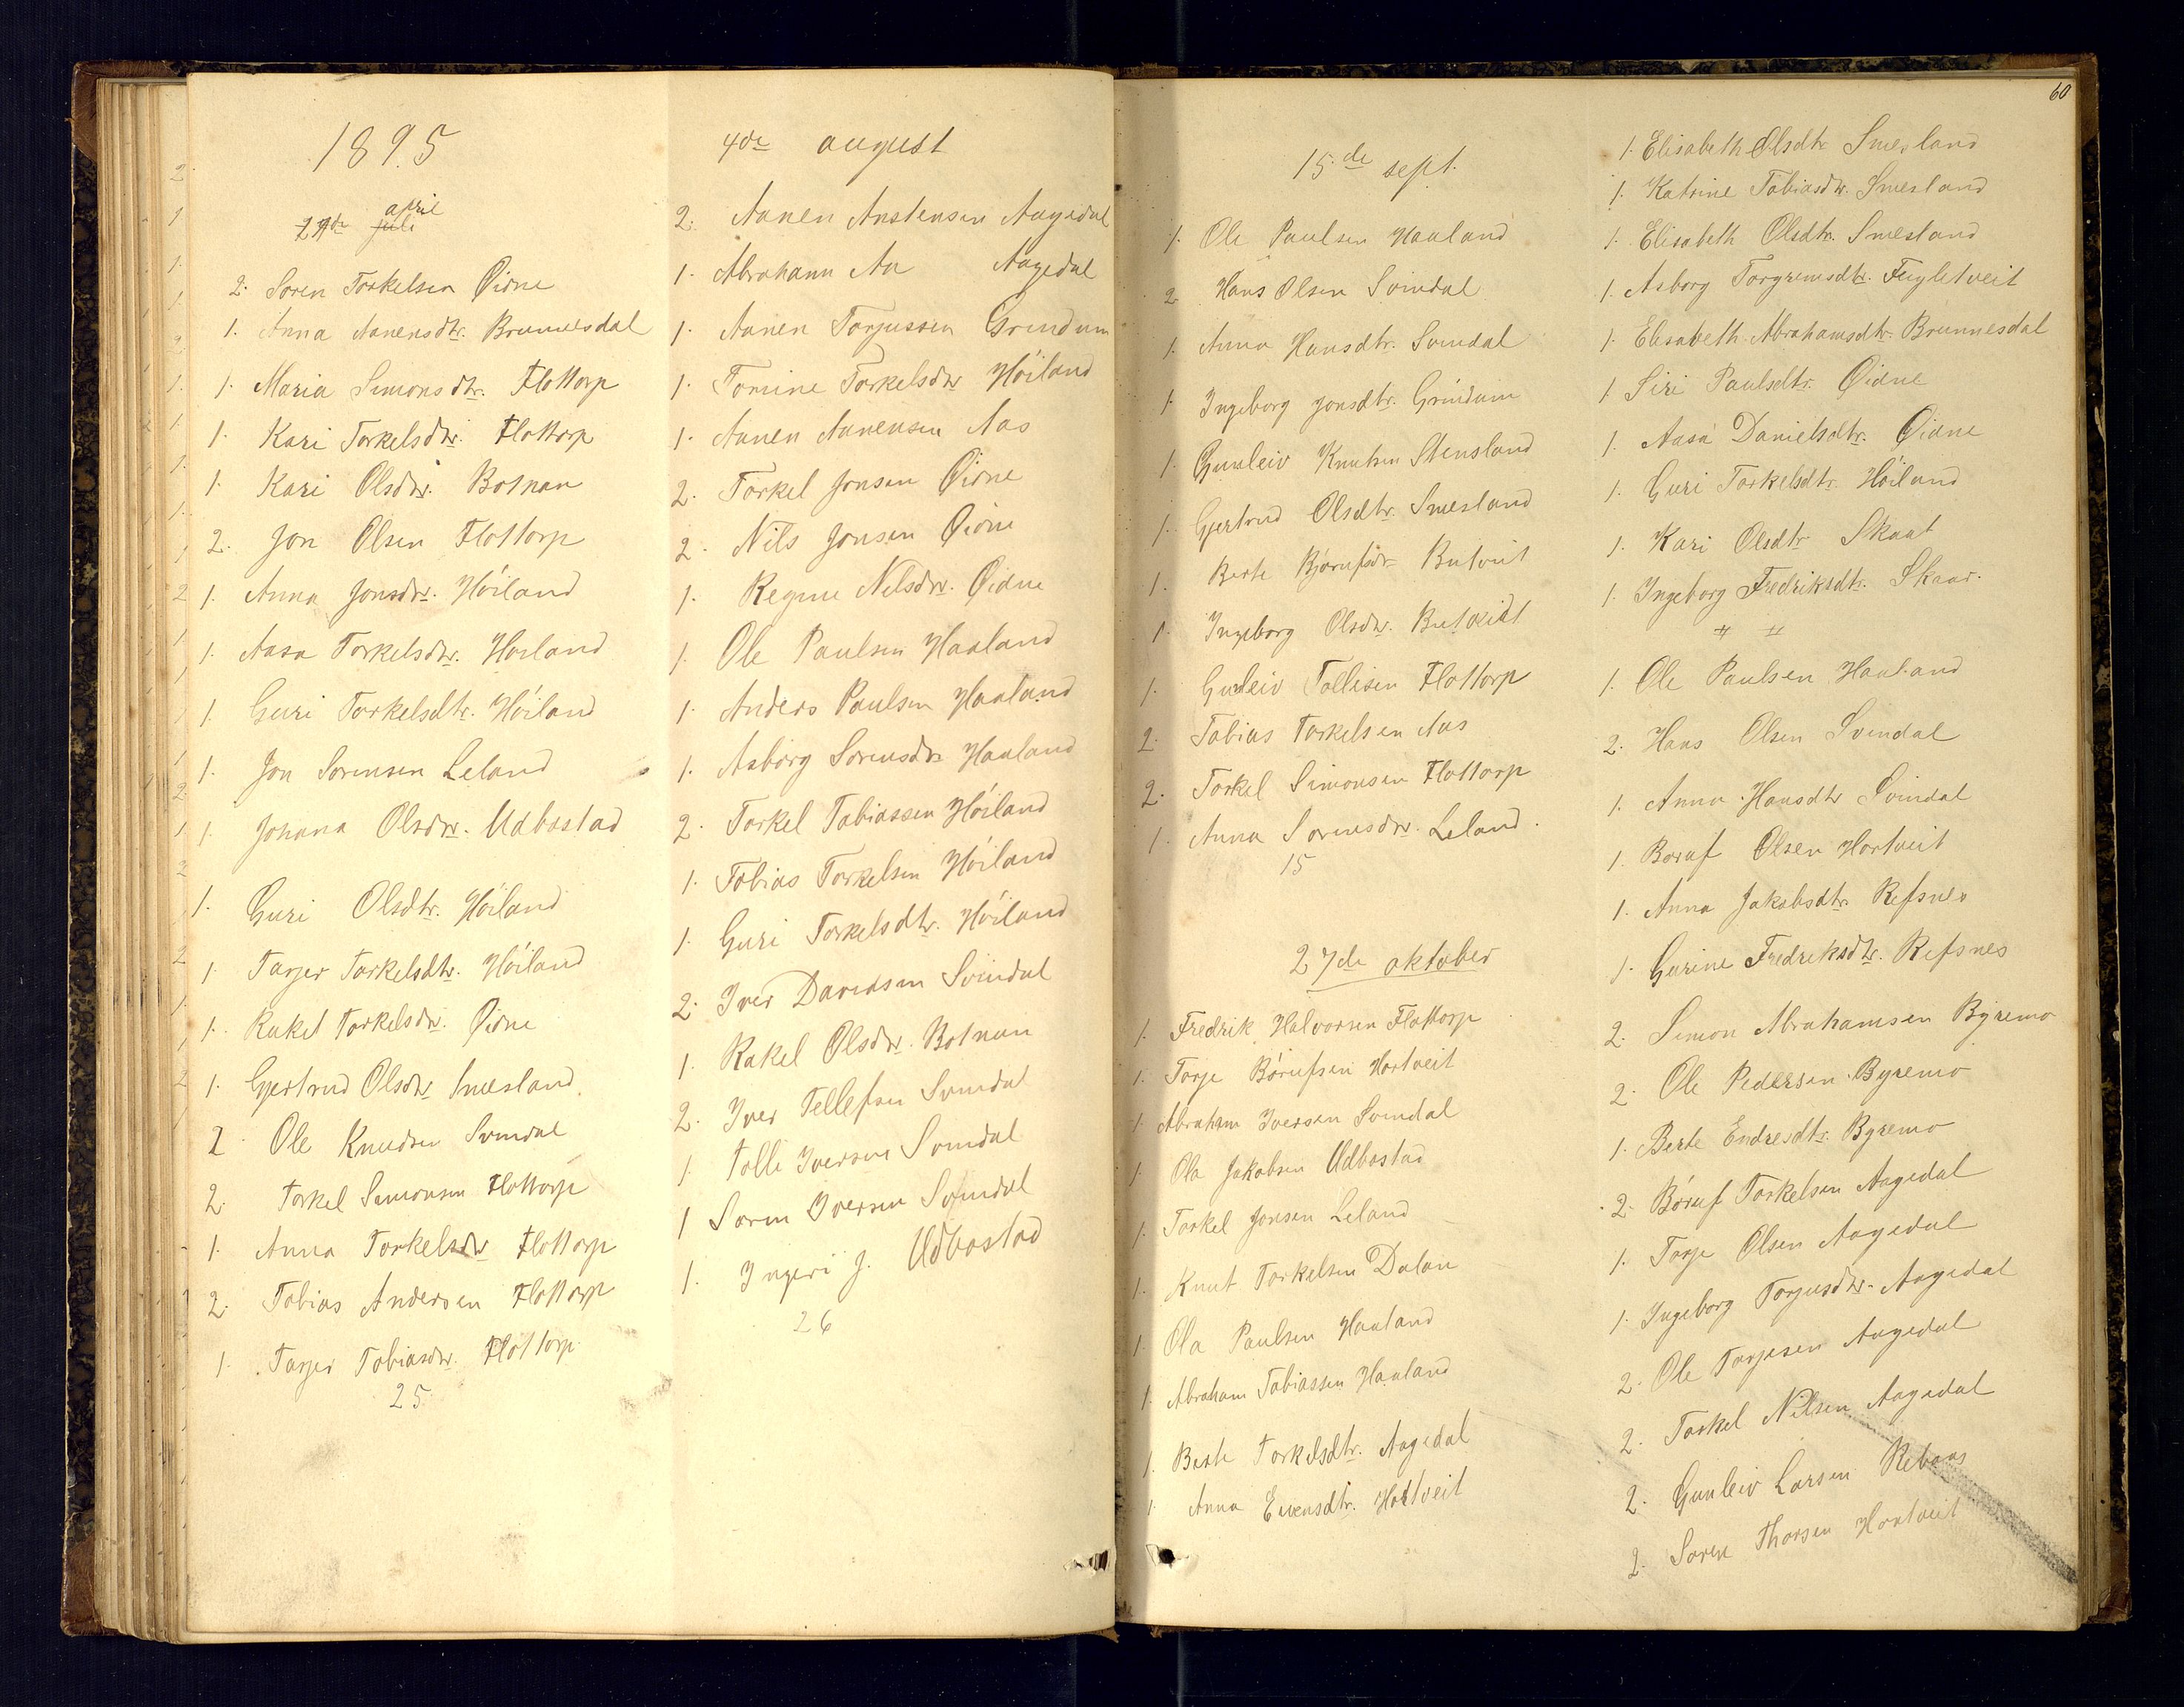 1895
april
29de juli
2. Soren Torkelsen Øidne
1. Anna Aanensdtr. Brunnesdal
1. Maria Simonsdtr. Flottorp
1. Kari Torkelsdtr. Flottorp
1. Kari Olsdtr. Botnan
2. Jon Olsen Flottorp
1. Anna Jonsdtr. Höiland
1. Aasa Torkelsdtr. Höiland
1. Guri Torkelsdtr. Höiland
1. Jon Sorensen Leland
1. Johana Olsdtr. Udbostad
1. Guri Olsdtr. Höiland
1. Tarjer Torkelsdtr. Höiland
1. Rakel Torkelsdtr. Øidne
1. Gjertrud Olsdtr Smesland
2 Ole Knudsen Svindal
2. Torkel Simonsen Flottorp
1. Anna Torkelsdtr Flottorp
2. Tobias Andersen Flottorp
1. Tarjer Tobiasdtr. Flottorp
25
4de august
2. Aanen Anstensen Aagedal
1. Abraham Aa Aagedal
1. Aanen Torjussen Grindum
1. Tomine Torkelsdtr Höiland
1. Aanen Aanensen Aas
2. Torkel Jonsen Øidne
2. Nils Jonsen Øidne
1. Regine Nilsdtr. Øidne
1. Ole Paulsen Haaland
1. Anders Paulsen Haaland
1. Asborg Sorensdtr Haaland
2. Torkel Tobiassen Höiland
1. Tobias Torkelsen Höiland
1. Guri Torkelsdtr. Höiland
2. Iver Davidsen Svindal
1. Rakel Olsdtr. Botnan
2. Iver Tellefsen Svindal
1. Tolli Iversen Svindal
1 Soren Iversen Svindal
1. Ingeri J. Udbostad
26
15de sept.
1. Ole Paulsen Haaland
2 Hans Olsen Svindal
1. Anna Hansdtr. Svindal
1. Ingeborg Jonsdtr. Grindum
1. Gunleiv Knutsen Stensland
1. Gjertrud Olsdtr. Smesland
1. Berte Bjørufsdtr Butveit
1. Ingeborg Olsdtr. Butveit
1. Gunleiv Tollisen Flottorp
2. Tobias Torkelsen Aas
2. Torkel Simonsen Flottorp
1. Anna Sorensdtr. Leland.
15
27de oktober
1. Fredrik Halvorsen Flottorp
1. Torje Börufsen Hortveit
1. Abraham Iversen Svindal
1. Ola Jakobsen Udbostad
1. Torkel Jonsen Leland
1. Knut Torkelsen Dalan
1. Ola Paulsen Haaland
1. Abraham Tobiassen Haaland
1. Berte Torkelsdtr. Aagedal
1. Anna Evensdtr. Hortveit
60
1. Elisabeth Olsdtr Smesland
1. Katrine Tobiasdtr. Smesland
1. Elisabeth Olsdtr. Smesland
1. Asborg Torgrimsdtr. Fugletveit
1. Elisabeth Abrahamsdtr. Brunnesdal
1 Siri Paulsdtr. Øidne
1. Aasa Danielsdtr. Øidne
1. Guri Torkelsdtr. Höiland
1. Kari Olsdtr Skaat
1. Ingeborg Fredriksdtr. Skaar.
1. Ole Paulsen Haaland
2. Hans Olsen Svindal
1. Anna Hansdtr Svindal
1. Boruf Olsen Hortveit
1. Anna Jakobsdtr. Refsnes
1. Gurine Fredriksdtr. Refsnes
2. Simon Abrahamsen Byremo
2. Ole Pedersen Byremo
1. Berte Endresdtr. Byremo
2. Böruf Torkelsen Aagedal
1. Torje Olsen Aagedal
1. Ingeborg Torjusdtr. Aagedal
2. Ole Torjesen Aagedal
2. Torkel Nilsen Aagedal
2. Gunleiv Larsen Rebaas
2. Soren Thorsen Hortveit